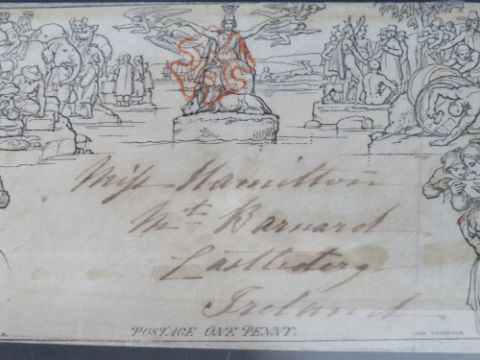 Miss Hamilton
Mt Barnard
Castlederg
Ireland
POSTAGE ONE PENNY.
JOHN THOMPSON